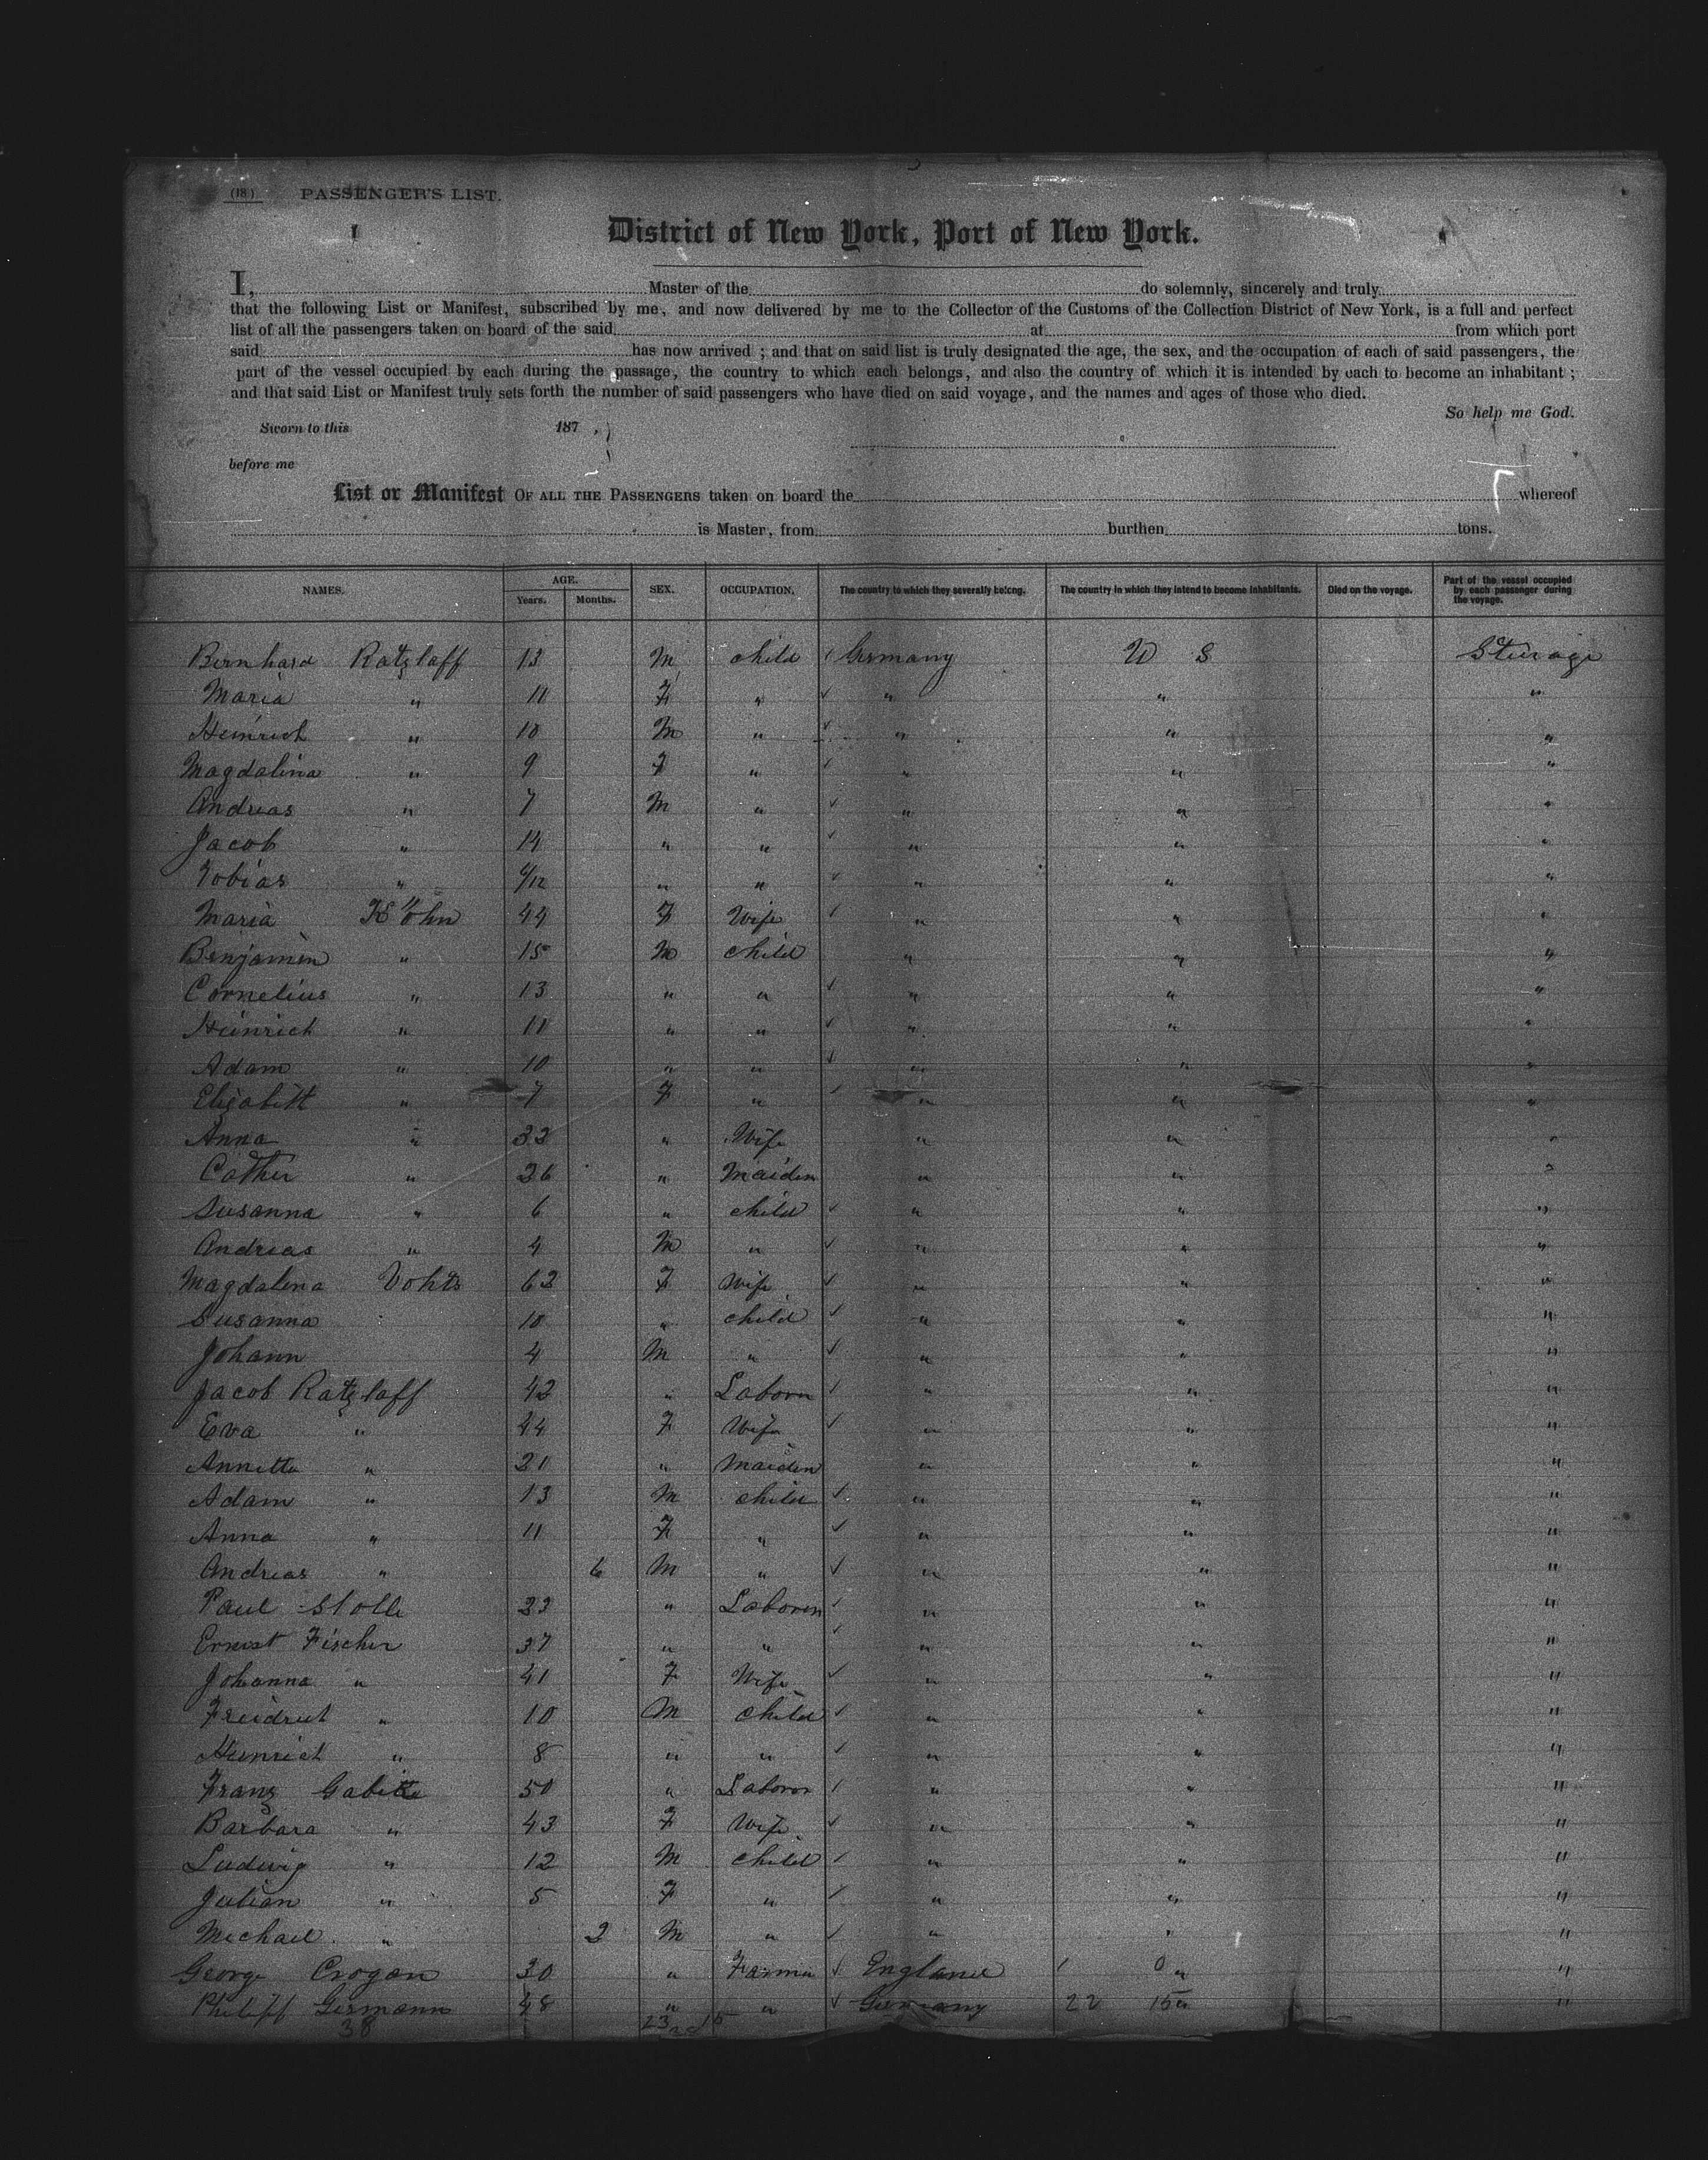 (18) PASSENGER'S LIST.
District of New York, Port of New York.
I, Master of the do solemnly, sincerely and truly
that the following List or Manifest, subscribed by me, and now delivered by me to the Collector of the Customs of the Collection District of New York, is a full and perfect
list of all the passengers taken on board of the said at from which port
said has now arrived ; and that on said list is truly designated the age, the sex, and the occupation of each of said passengers, the
part of the vessel occupied by each during the passage, the country to which each belongs, and also the country of which it is intended by each to become an inhabitant ;
and that said List or Manifest truly sets forth the number of said passengers who have died on said voyage, and the names and ages of those who died.
So help me God.
Sworn to this 187 .
before me
List or Manifest OF ALL THE PASSENGERS taken on board the whereof
is Master, from burthen tons.
NAMES. AGE. Years. Months. SEX. OCCUPATION. The country to which they severally belong. The country in which they intend to become inhabitants. Died on the voyage. Part of the vessel occupied by each passenger during the voyage.
Bernhard Ratzlaff 13 M child Germany U S Steerage
Maria " 11 F " " " "
Heinrich " 10 M " " " "
Magdalina " 9 F " " " "
Andreas " 7 M " " " "
Jacob " 14 " " " " "
Tobias " " " " " "
Maria Köhn 44 F Wife " " "
Benjamin " 15 M child " " "
Cornelius " 13 " " " " "
Heinrich " 11 " " " " "
Adam " 10 " " " " "
Elizabett " 7 F " " " "
Anna " 32 " Wife " " "
Cather " 26 " Maiden " " "
Susanna " 6 " child " " "
Andreas " 4 M " " " "
Magdalena Vohts 62 F Wife " " "
Susanna 10 " child " " "
Johann 4 M " " " "
Jacob Ratzlaff 42 " Laborer " " "
Eva " 44 F Wife " " "
Annette " 21 " Maiden " " "
Adam " 13 M child " " "
Anna " 11 F " " " "
Andreas " 6 M " " " "
Paul Stolle 23 " Laborer " " "
Ernest Fischer 37 " " " " "
Johanna " 41 F Wife " " "
Freidrich " 10 M child " " "
Heinrich " 8 " " " " "
Franz 50 " Laborer " " "
Barbara " 43 F Wife " " "
Ludwig " 12 M child " " "
Julian " 5 F " " " "
Michael " 2 M " " " "
George Crogan 30 " Farmer England 1 0 " "
Philipp Germann 48 " " Germany 22 15 " "
38 23